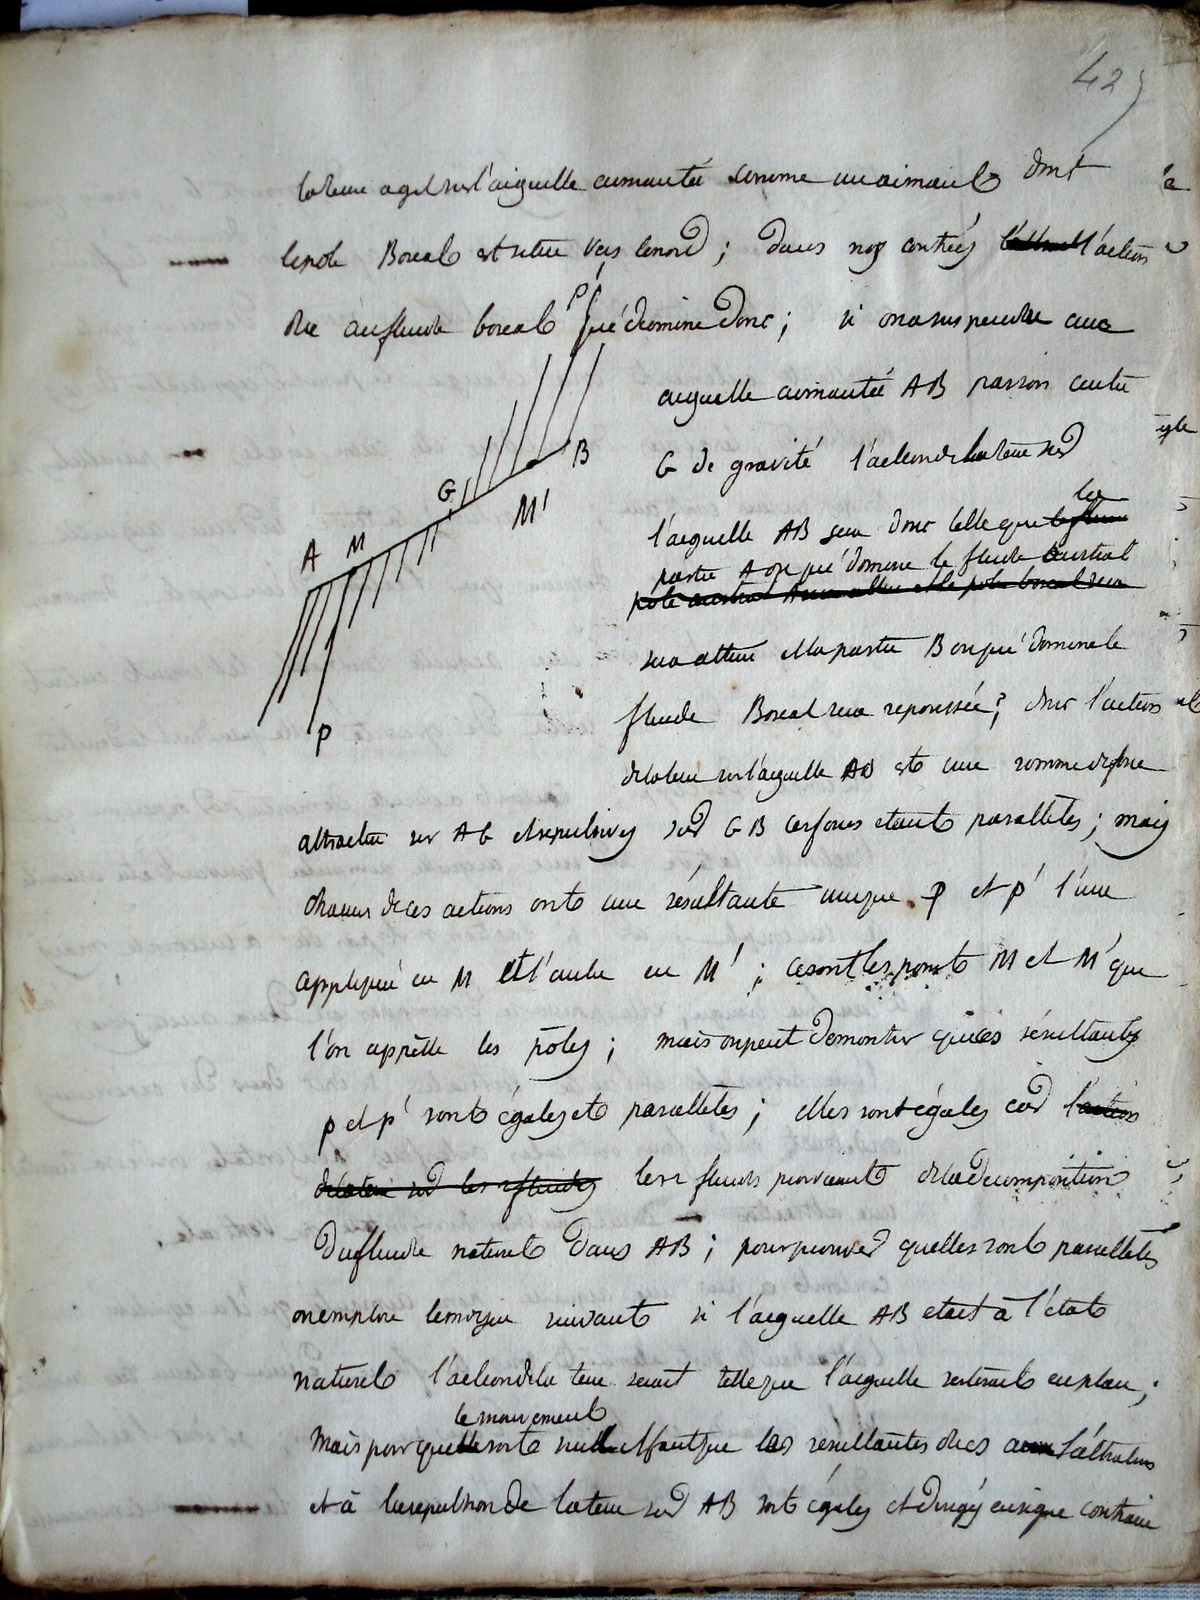 42
la terre agit sur l'aiguille aimantée comme un aimant dont
le pole Boreal est situé vers le nord; dans nos contrées l'action
due au fluide boreal y prédomine donc; si on a suspendu une
P'
aiguille aimantée AB par son centre
G de gravité l'action de la terre sur
B
G
M'
A M
P
l'aiguille AB sera donc telle que la
partie A ou prédomine le fluide austral
pole austral A sera attiré et le pole boreal sera
sera attirée et la partie B ou prédomine le
fluide Boreal sera repoussée; donc l'action
de la terre sur l'aiguille AB est une somme de force
attractive sur AG et repulsives sur GB ces forces etant paralleles; mais
chacune de ces actions ont une résultante unique P et P' l'une
appliquée en M et l'autre en M'; ce sont les points M et M' que
l'on appelle les pôles; mais on peut demontrer que ces résultantes
P et P' sont égales et paralleles; elles sont égales car l'action
de la terre sur les fluides les 2 fluides provenant de la decomposition
du fluide naturel dans AB; pour prouver quelles sont paralleles
on emploie le moyen suivant si l'aiguille AB etait à l'état
naturel l'action de la terre serait telle que l'aiguille resterait en place;
le mouvement
mais pour que soit nul il faut que les résultantes dues à l'attraction
et à la repulsion de la terre sur AB soit égales et dirigés en signe contraire